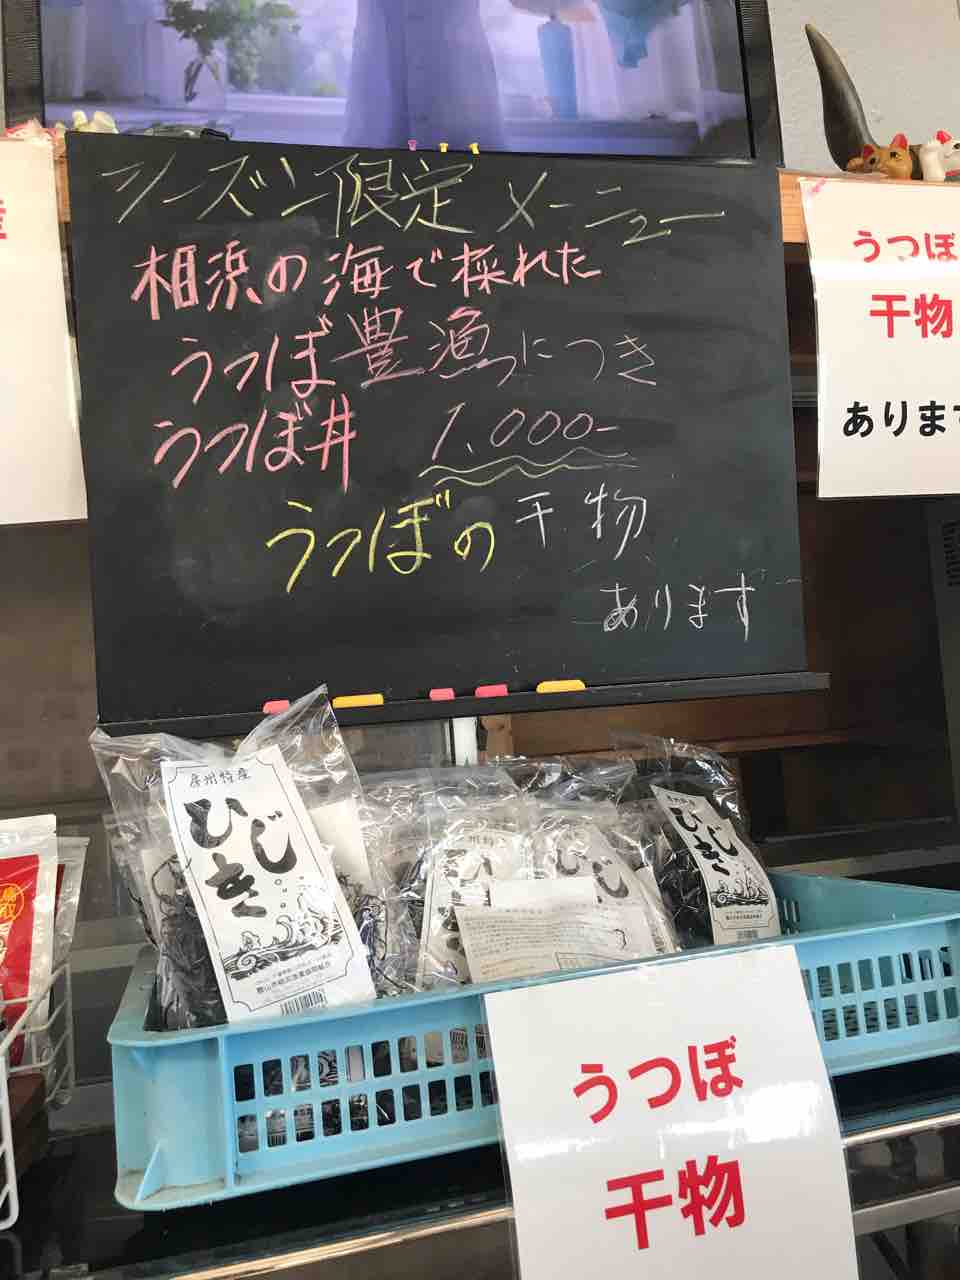 シーズン限定メニュー
相浜の海で採れた
うつぼ豊漁につき
うつぼ丼 1,000-
うつぼの干物
あります
うつぼ
干物
あります
房州特産
ひじき
館山市
ひじき
うつぼ
干物